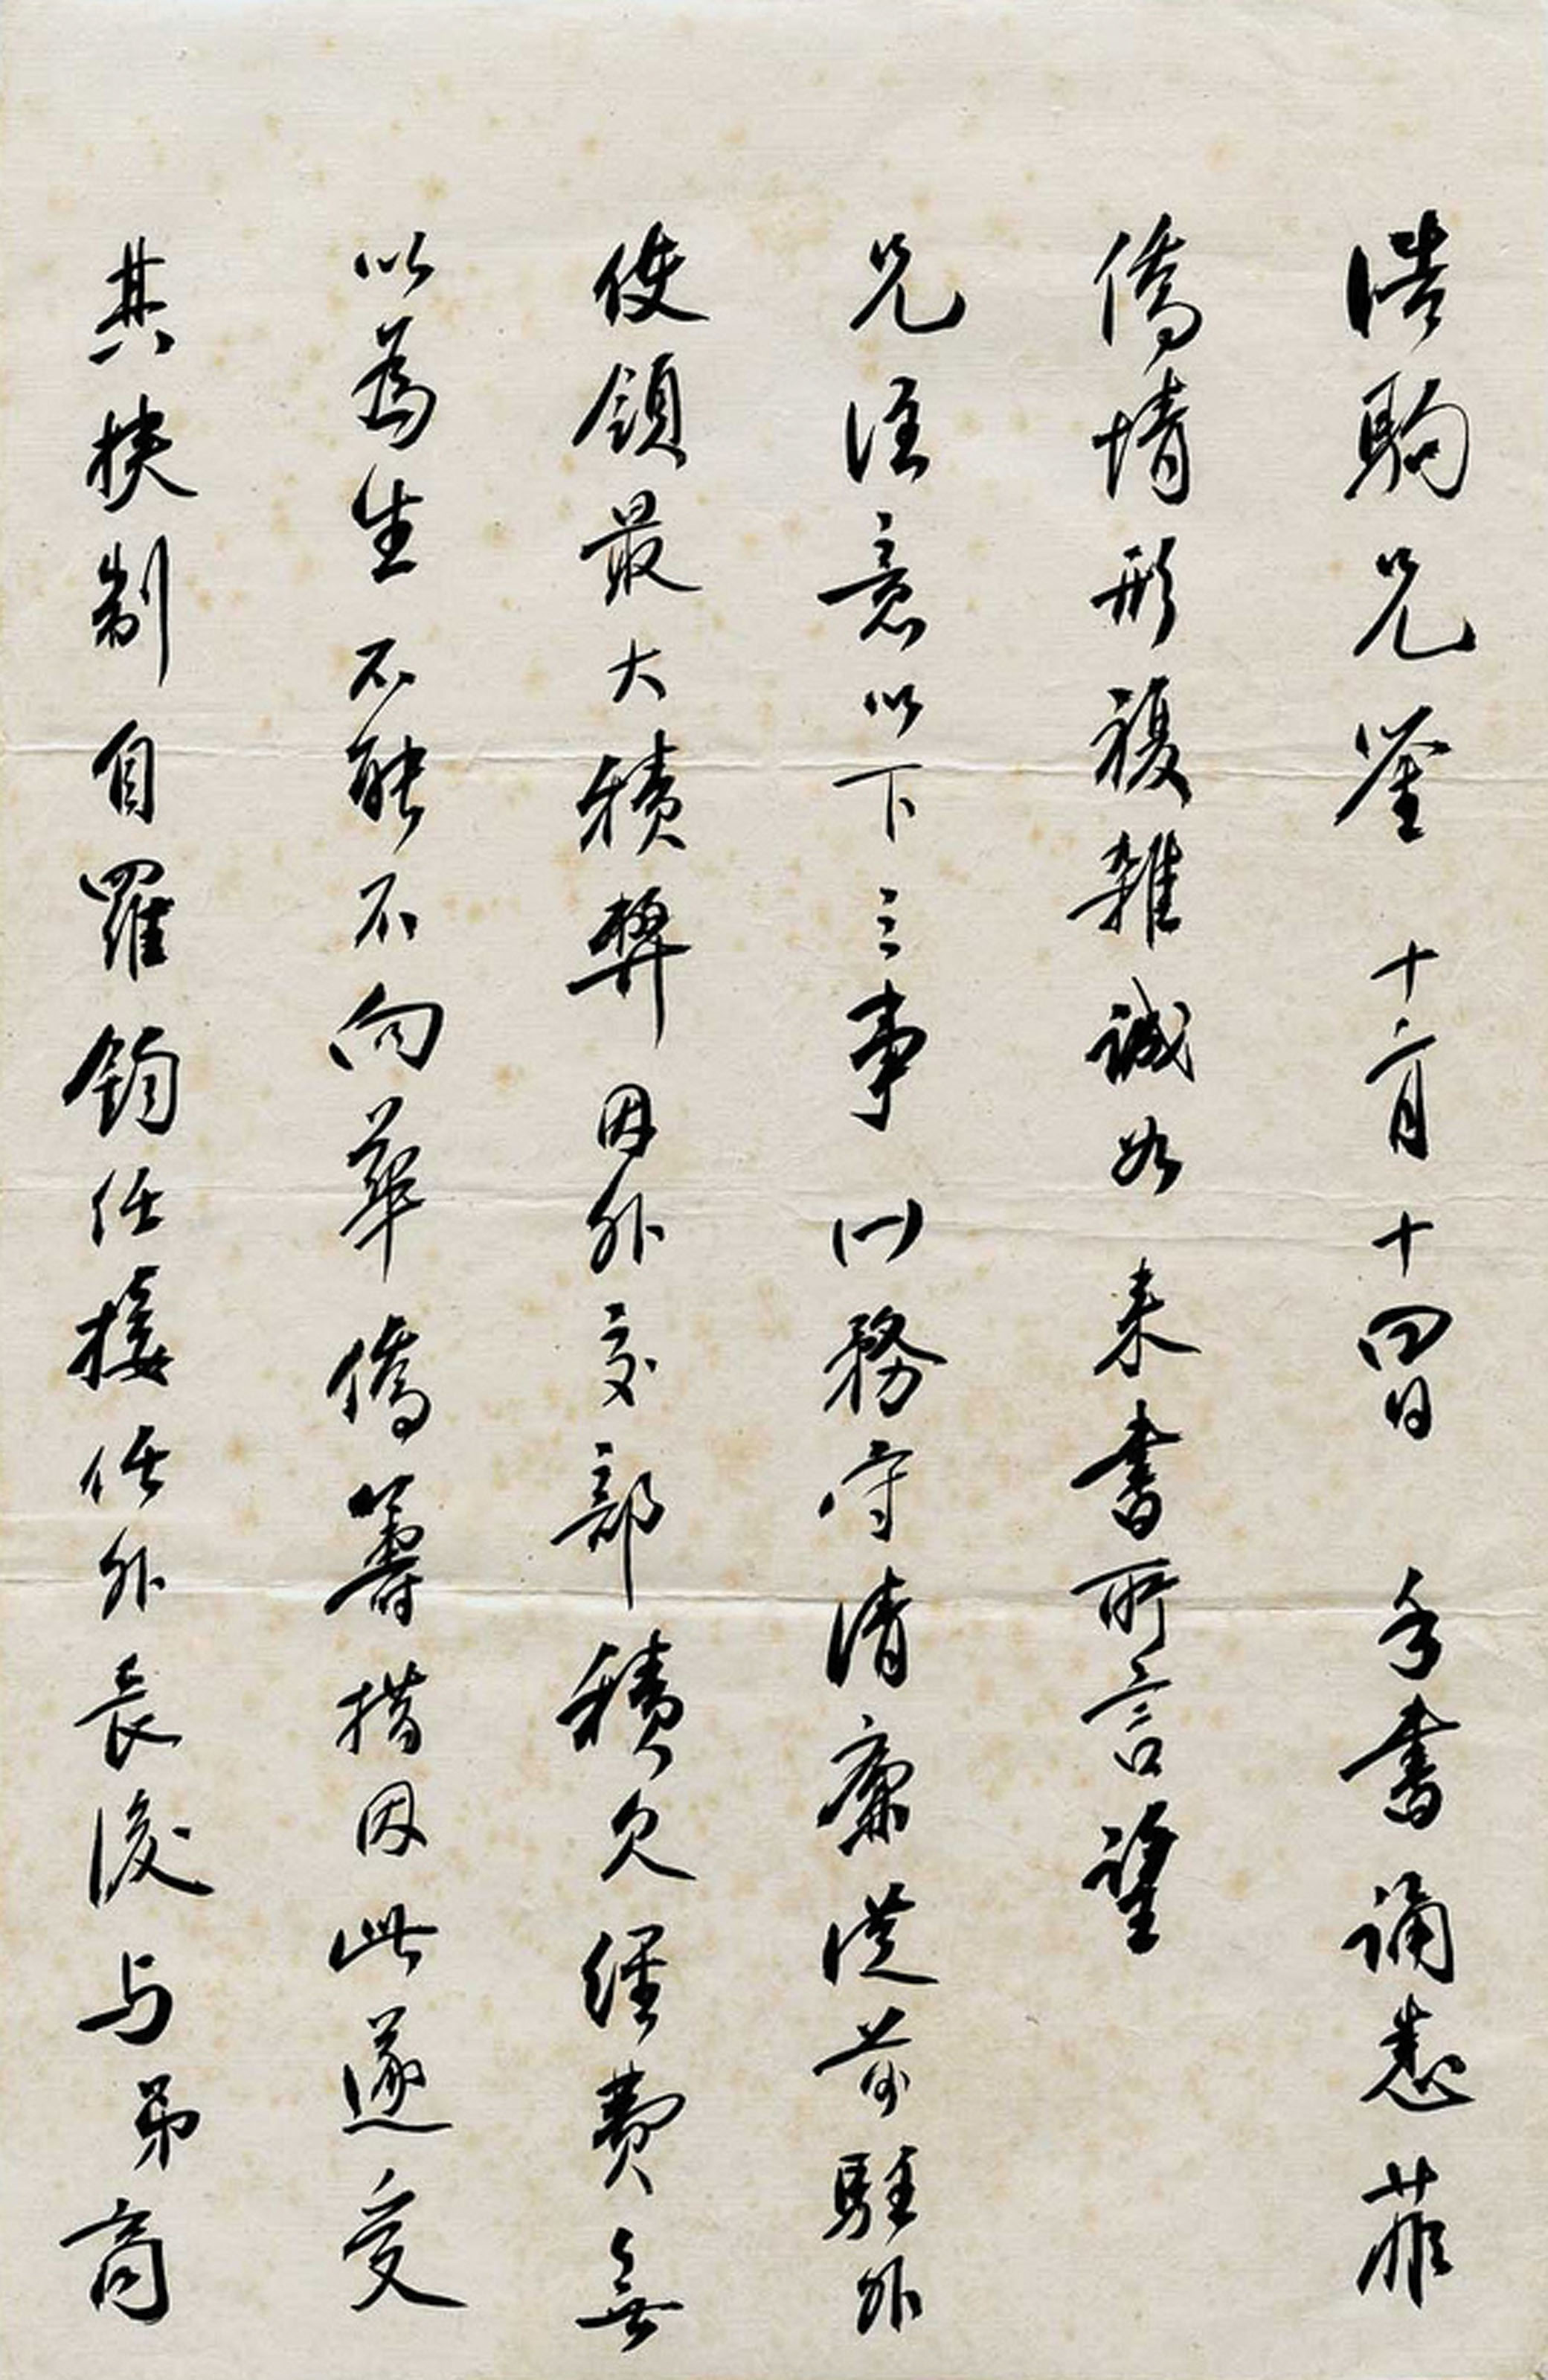 浩駒兄鑒 十二月十四日 手書誦悉菲
僑情形複雜誠如 来書所言望
兄注意以下三事 (一)務守清廉從前駐外
使領最大積弊因外交部積欠經費無
以為生不能不向華僑籌措因此遂受
其挾制自羅鈞任接任外長後与弟商